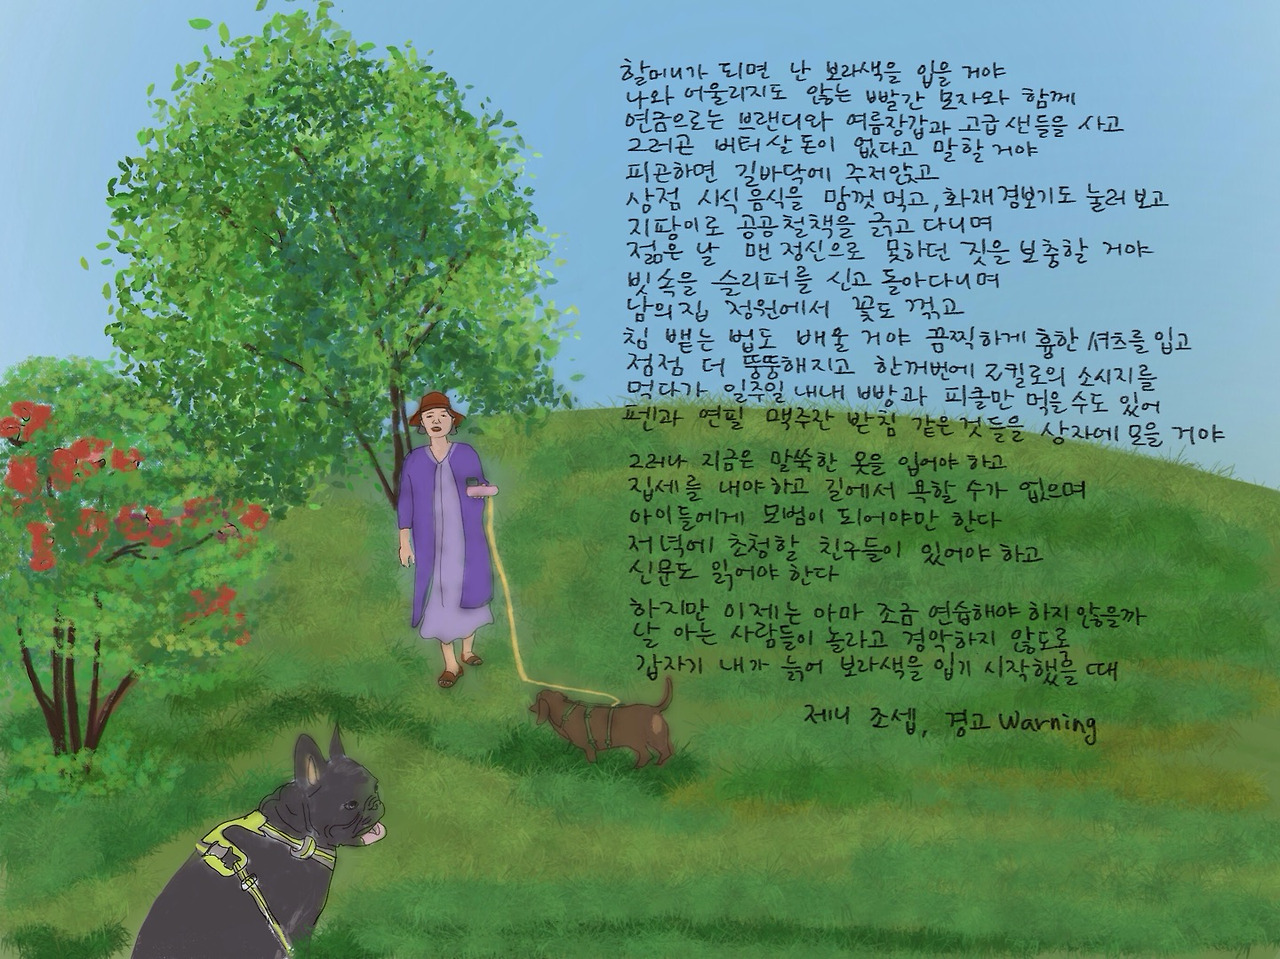 할머니가 되면 난 보라색을 입을 거야
나와 어울리지도 않는 빨간 모자와 함께
연금으로는 브랜디와 여름장갑과 고급 샌들을 사고
그러곤 버터 살 돈이 없다고 말할 거야
피곤하면 길바닥에 주저앉고
상점 시식 음식을 맘껏 먹고, 화재경보기도 눌러 보고
지팡이로 공공철책을 긁고 다니며
젊은 날 맨 정신으로 못하던 짓을 보충할 거야
빗속을 슬리퍼를 신고 돌아다니며
남의 집 정원에서 꽃도 꺾고
침 뱉는 법도 배울 거야 끔찍하게 흉한 셔츠를 입고
점점 더 뚱뚱해지고 한꺼번에 2킬로의 소시지를
먹다가 일주일 내내 빵과 피클만 먹을 수도 있어
펜과 연필 맥주잔 받침 같은 것들을 상자에 모을 거야
그러나 지금은 말쑥한 옷을 입어야 하고
집세를 내야하고 길에서 욕할 수가 없으며
아이들에게 모범이 되어야만 한다
저녁에 초청할 친구들이 있어야 하고
신문도 읽어야 한다
하지만 이제는 아마 조금 연습해야 하지 않을까
날 아는 사람들이 놀라고 경악하지 않도록
갑자기 내가 늙어 보라색을 입기 시작했을 때
제니 조셉, 경고 Warning